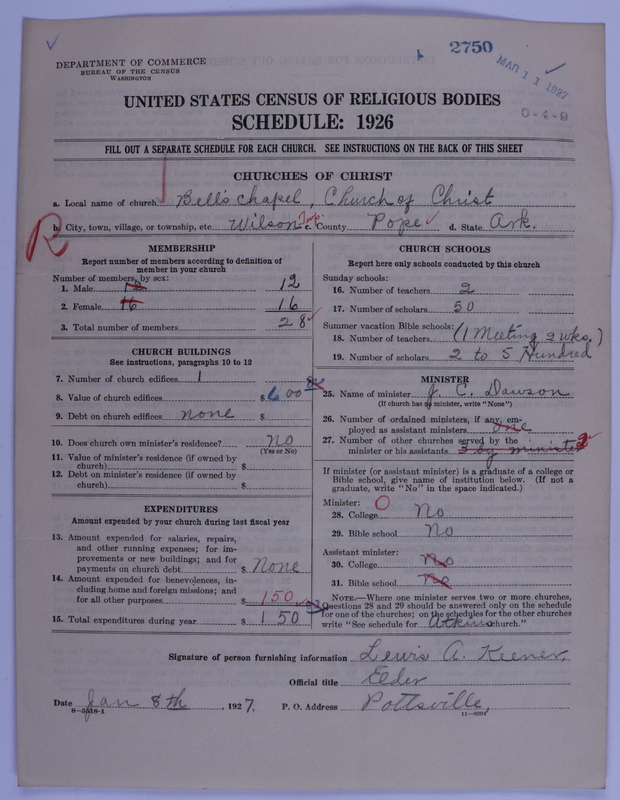 2750
MAR 11 1927
DEPARTMENT OF COMMERCE
BUREAU OF THE CENSUS
WASHINGTON
UNITED STATES CENSUS OF RELIGIOUS BODIES
SCHEDULE: 1926
FILL OUT A SEPARATE SCHEDULE FOR EACH CHURCH. SEE INSTRUCTIONS ON THE BACK OF THIS SHEET
CHURCHES OF CHRIST
a. Local name of church Bell's chapel, Church of Christ
R
b. City, town, village, or township, etc. Wilson Twp. c. County Pope d. State Ark.
MEMBERSHIP
Report number of members according to definition of
member in your church
Number of members, by sex:
1. Male 12 12
2. Female 16 16
3. Total number of members 28
CHURCH BUILDINGS
See instructions, paragraphs 10 to 12
7. Number of church edifices 1
8. Value of church edifices $ 600
9. Debt on church edifices none $
10. Does church own minister's residence? no
(Yes or No)
11. Value of minister's residence (if owned by
church) $
12. Debt on minister's residence (if owned by
church) $
EXPENDITURES
Amount expended by your church during last fiscal year
13. Amount expended for salaries, repairs,
and other running expenses; for im-
provements or new buildings; and for
payments on church debt $ None
14. Amount expended for benevolences, in-
cluding home and foreign missions; and
for all other purposes $ 150
15. Total expenditures during year $ 150
CHURCH SCHOOLS
Report here only schools conducted by this church
Sunday schools:
16. Number of teachers 2
17. Number of scholars 50
Summer vacation Bible schools:
18. Number of teachers (1 Meeting 2 wks.)
19. Number of scholars 2 to 5 Hundred
MINISTER
25. Name of minister J. C. Dawson
(If church has no minister, write "None")
26. Number of ordained ministers, if any, em-
ployed as assistant ministers one
27. Number of other churches served by the
minister or his assistants 3 by minister 2
If minister (or assistant minister) is a graduate of a college or
Bible school, give name of institution below. (If not a
graduate, write "No" in the space indicated.)
Minister: O
28. College No
29. Bible school No
Assistant minister:
30. College No
31. Bible school No
NOTE.—Where one minister serves two or more churches,
Questions 28 and 29 should be answered only on the schedule
for one of the churches; on the schedules for the other churches
write "See schedule for Atkins church."
Signature of person furnishing information Lewis A. Keener,
Official title Elder
Date Jan 8th, 1927. P. O. Address Pottsville,
8-5518-1